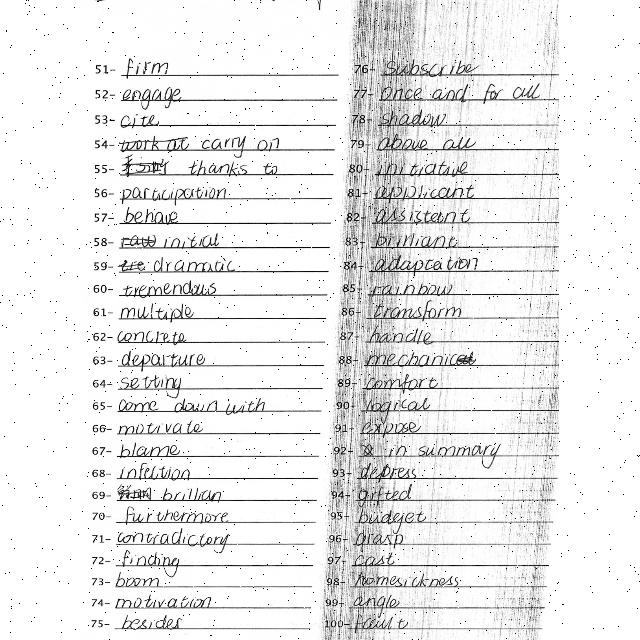 51- firm
52- engage
53- cite
54- work at carry on
55- thanks to
56- participation
57- behave
58- initial
59- dramatic
60- tremendous
61- multiple
62- concrete
63- departure
64- setting
65- come down with
66- motivate
67- blame
68- infection
69- brillian
70- furthermore
71- contradictory
72- finding
73- boom
74- motivation
75- besides
76- Subscribe
77- Once and for all
78- shadow
79- above all
80- initiative
81- applicant
82- assistant
83- brilliant
84- adaptation
85- rainbow
86- transform
87- handle
88- mechanic
89- comfort
90- logical
91- expose
92- in summary
93- depress
94- gifted
95- budget
96- grasp
97- cast
98- homesickness
99- angle
100- fault